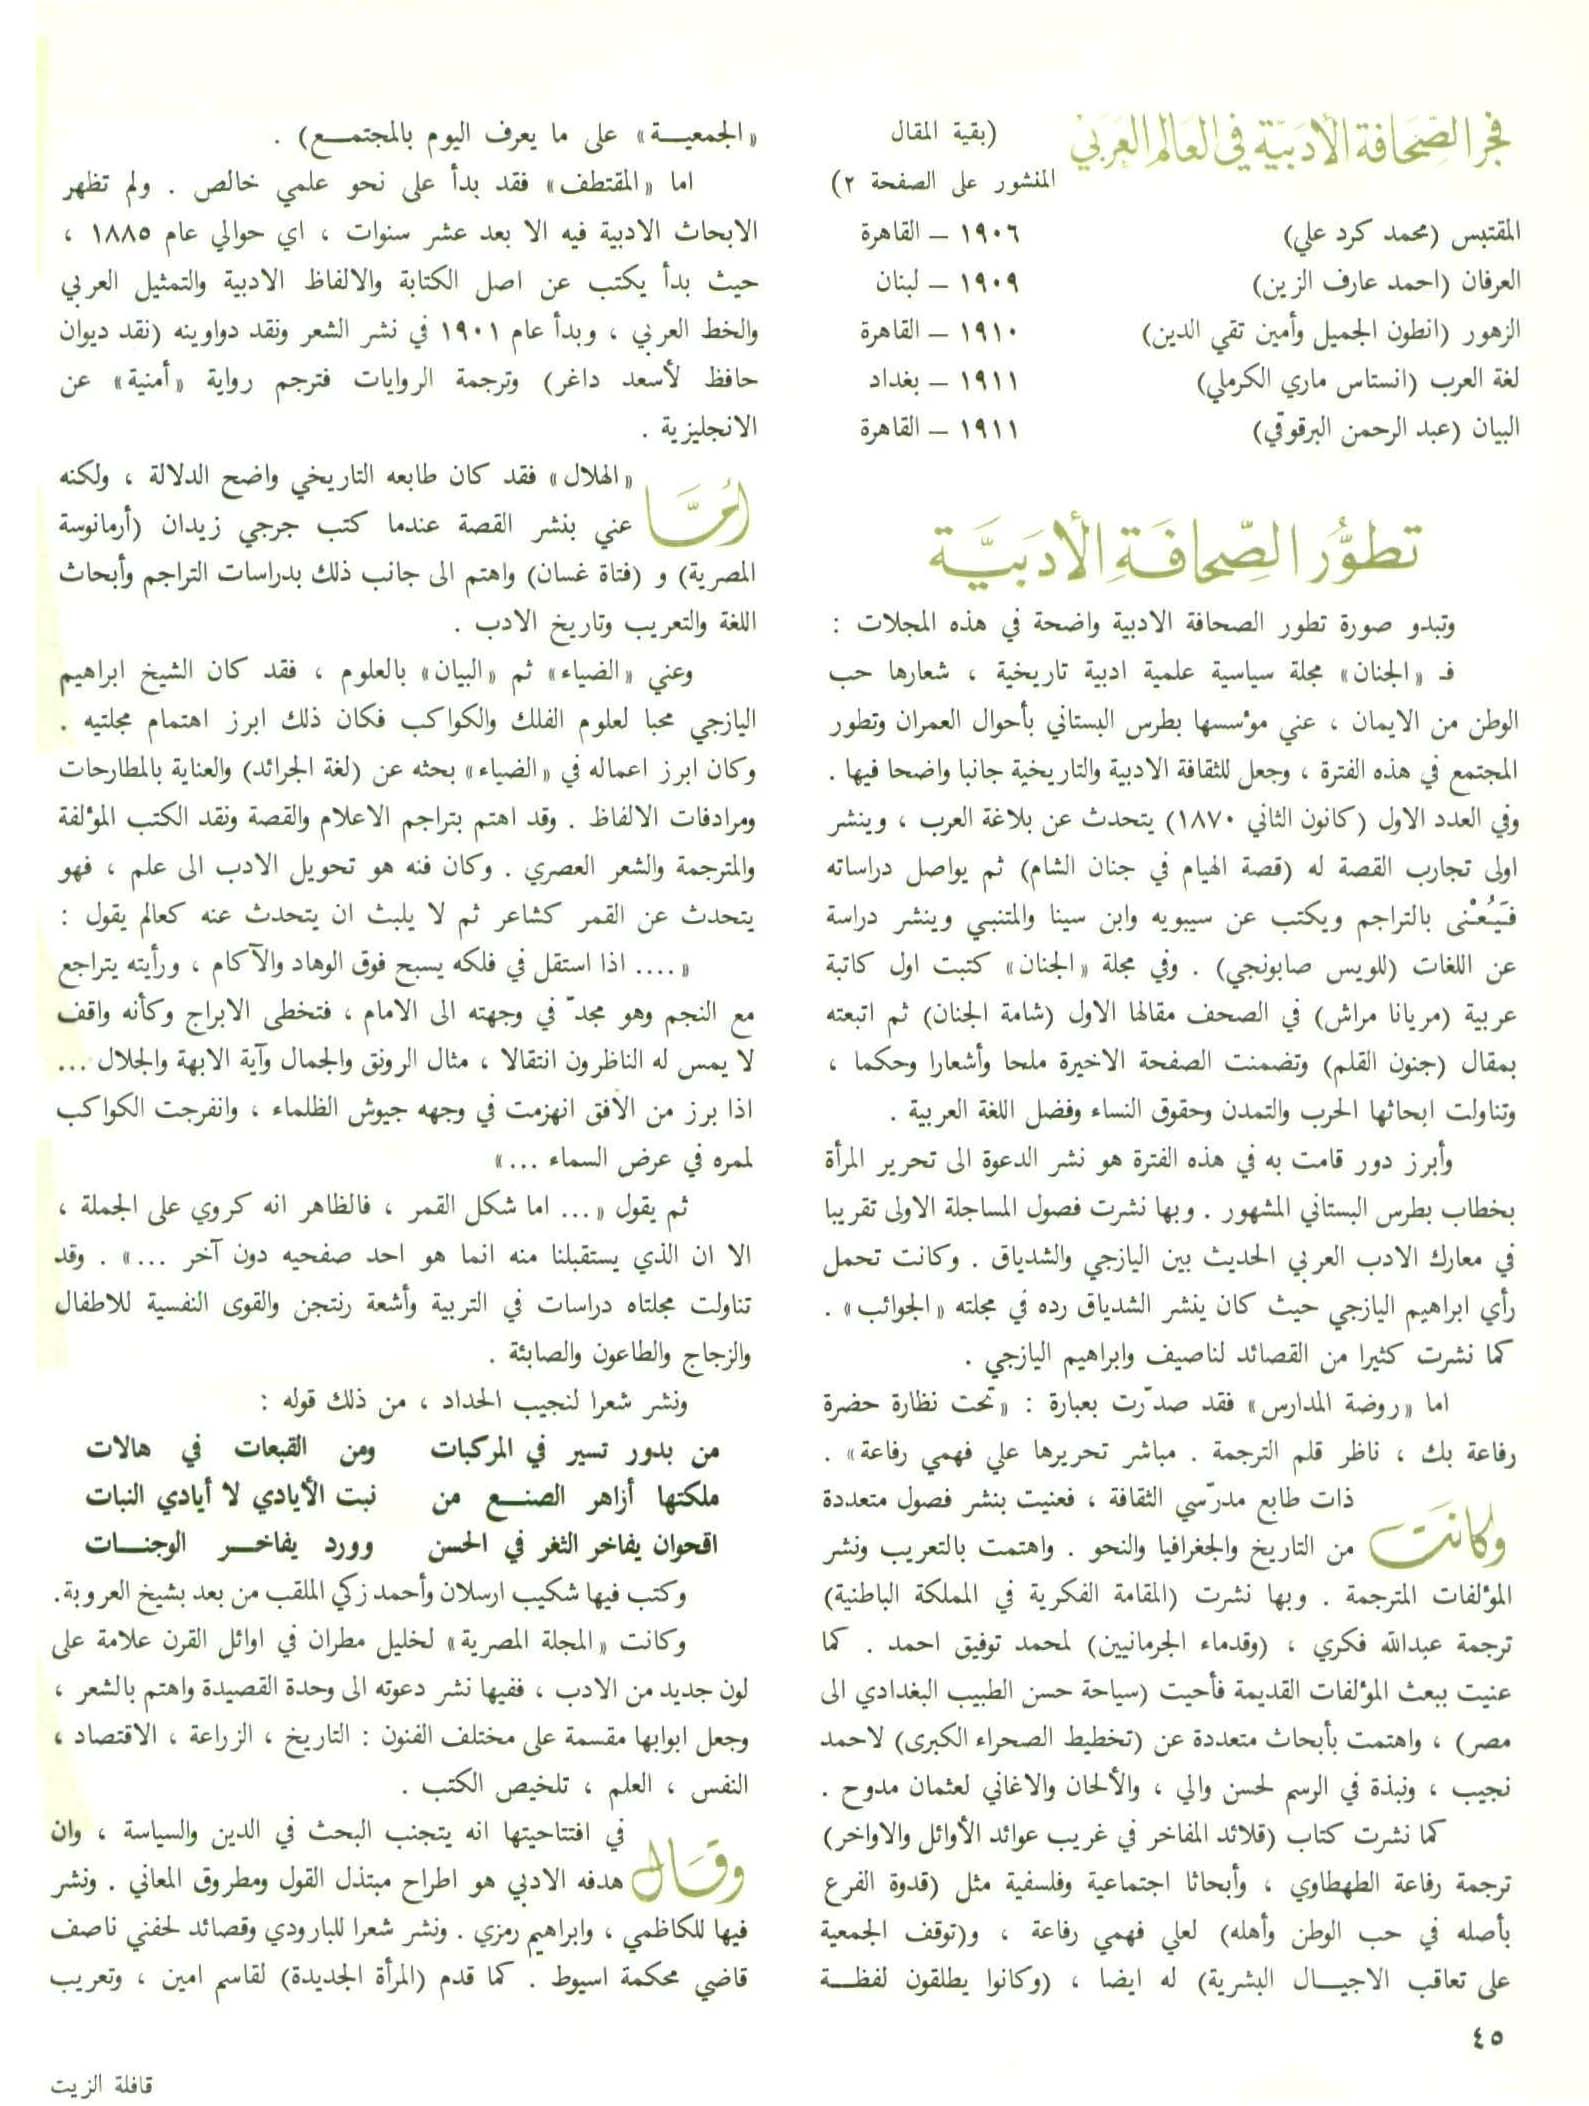 فجر الصّحافة الأدبيّة في العالم العربي
(بقية المقال
المنشور على الصفحة ٢)
المقتبس (محمد كرد علي) ١٩٠٦ – القاهرة
العرفان (احمد عارف الزين) ١٩٠٩ – لبنان
الزهور (انطون الجميل وأمين تقي الدين) ١٩١٠ – القاهرة
لغة العرب (انستاس ماري الكرملي) ١٩١١ – بغداد
البيان (عبد الرحمن البرقوقي) ١٩١١ – القاهرة
تطوُّر الصّحافَةِ الأدَبيَّة
وتبدو صورة تطور الصحافة الادبية واضحة في هذه المجلات :
فـ «الجنان» مجلة سياسية علمية ادبية تاريخية ، شعارها حب
الوطن من الايمان ، عني مؤسسها بطرس البستاني بأحوال العمران وتطور
المجتمع في هذه الفترة ، وجعل للثقافة الادبية والتاريخية جانبا واضحا فيها .
وفي العدد الاول (كانون الثاني ١٨٧٠) يتحدث عن بلاغة العرب ، وينشر
اولى تجارب القصة له (قصة الهيام في جنان الشام) ثم يواصل دراساته
فَيُعْنى بالتراجم ويكتب عن سيبويه وابن سينا والمتنبي وينشر دراسة
عن اللغات (للويس صابونجي) . وفي مجلة «الجنان» كتبت اول كاتبة
عربية (مريانا مراش) في الصحف مقالها الاول (شامة الجنان) ثم اتبعته
بمقال (جنون القلم) وتضمنت الصفحة الاخيرة ملحا وأشعارا وحكما ،
وتناولت ابحاثها الحرب والتمدن وحقوق النساء وفضل اللغة العربية .
وأبرز دور قامت به في هذه الفترة هو نشر الدعوة الى تحرير المرأة
بخطاب بطرس البستاني المشهور . وبها نشرت فصول المساجلة الاولى تقريبا
في معارك الادب العربي الحديث بين اليازجي والشدياق . وكانت تحمل
رأي ابراهيم اليازجي حيث كان ينشر الشدياق رده في مجلته «الجوائب» .
كما نشرت كثيرا من القصائد لناصيف وابراهيم اليازجي .
اما «روضة المدارس» فقد صدّرت بعبارة : «تحت نظارة حضرة
رفاعة بك ، ناظر قلم الترجمة . مباشر تحريرها علي فهمي رفاعة» .
وكانت ذات طابع مدرّسي الثقافة ، فعنيت بنشر فصول متعددة
من التاريخ والجغرافيا والنحو . واهتمت بالتعريب ونشر
المؤلفات المترجمة . وبها نشرت (المقامة الفكرية في المملكة الباطنية)
ترجمة عبدالله فكري ، (وقدماء الجرمانيين) لمحمد توفيق احمد . كما
عنيت ببعث المؤلفات القديمة فأحيت (سياحة حسن الطبيب البغدادي الى
مصر) ، واهتمت بأبحاث متعددة عن (تخطيط الصحراء الكبرى) لاحمد
نجيب ، ونبذة في الرسم لحسن والي ، والألحان والاغاني لعثمان مدوح .
كما نشرت كتاب (قلائد المفاخر في غريب عوائد الأوائل والاواخر)
ترجمة رفاعة الطهطاوي ، وأبحاثا اجتماعية وفلسفية مثل (قدوة الفرع
بأصله في حب الوطن وأهله) لعلي فهمي رفاعة ، و(توقف الجمعية
على تعاقب الاجيال البشرية) له ايضا ، (وكانوا يطلقون لفظة
«الجمعية» على ما يعرف اليوم بالمجتمع) .
اما «المقتطف» فقد بدأ على نحو علمي خالص . ولم تظهر
الابحاث الادبية فيه الا بعد عشر سنوات ، اي حوالي عام ١٨٨٥ ،
حيث بدأ يكتب عن اصل الكتابة والالفاظ الادبية والتمثيل العربي
والخط العربي ، وبدأ عام ١٩٠١ في نشر الشعر ونقد دواوينه (نقد ديوان
حافظ لأسعد داغر) وترجمة الروايات فترجم رواية «أمنية» عن
الانجليزية .
أمّا «الهلال» فقد كان طابعه التاريخي واضح الدلالة ، ولكنه
عني بنشر القصة عندما كتب جرجي زيدان (أرمانوسة
المصرية) و (فتاة غسان) واهتم الى جانب ذلك بدراسات التراجم وأبحاث
اللغة والتعريب وتاريخ الادب .
وعني «الضياء» ثم «البيان» بالعلوم ، فقد كان الشيخ ابراهيم
اليازجي محبا لعلوم الفلك والكواكب فكان ذلك ابرز اهتمام مجلتيه .
وكان ابرز اعماله في «الضياء» بحثه عن (لغة الجرائد) والعناية بالمطارحات
ومرادفات الالفاظ . وقد اهتم بتراجم الاعلام والقصة ونقد الكتب المؤلفة
والمترجمة والشعر العصري . وكان فنه هو تحويل الادب الى علم ، فهو
يتحدث عن القمر كشاعر ثم لا يلبث ان يتحدث عنه كعالم يقول :
«.... اذا استقل في فلكه يسبح فوق الوهاد والآكام ، ورأيته يتراجع
مع النجم وهو مجدّ في وجهته الى الامام ، فتخطى الابراج وكأنه واقف
لا يمس له الناظرون انتقالا ، مثال الرونق والجمال وآية الابهة والجلال ...
اذا برز من الأفق انهزمت في وجهه جيوش الظلماء ، وانفرجت الكواكب
لممره في عرض السماء ...»
ثم يقول «... اما شكل القمر ، فالظاهر انه كروي على الجملة ،
الا ان الذي يستقبلنا منه انما هو احد صفحيه دون آخر ...» . وقد
تناولت مجلتاه دراسات في التربية وأشعة رنتجن والقوى النفسية للاطفال
والزجاج والطاعون والصابئة .
ونشر شعرا لنجيب الحداد ، من ذلك قوله :
من بدور تسير في المركبات ومن القبعات في هالات
ملكتها أزاهر الصنع من نبت الأيادي لا أيادي النبات
اقحوان يفاخر الثغر في الحسن وورد يفاخر الوجنات
وكتب فيها شكيب ارسلان وأحمد زكي الملقب من بعد بشيخ العروبة.
وكانت «المجلة المصرية» لخليل مطران في اوائل القرن علامة على
لون جديد من الادب ، ففيها نشر دعوته الى وحدة القصيدة واهتم بالشعر ،
وجعل ابوابها مقسمة على مختلف الفنون : التاريخ ، الزراعة ، الاقتصاد ،
النفس ، العلم ، تلخيص الكتب .
وقال في افتتاحيتها انه يتجنب البحث في الدين والسياسة ، وان
هدفه الادبي هو اطراح مبتذل القول ومطروق المعاني . ونشر
فيها للكاظمي ، وابراهيم رمزي . ونشر شعرا للبارودي وقصائد لحفني ناصف
قاضي محكمة اسيوط . كما قدم (المرأة الجديدة) لقاسم امين ، وتعريب
٤٥
قافلة الزيت